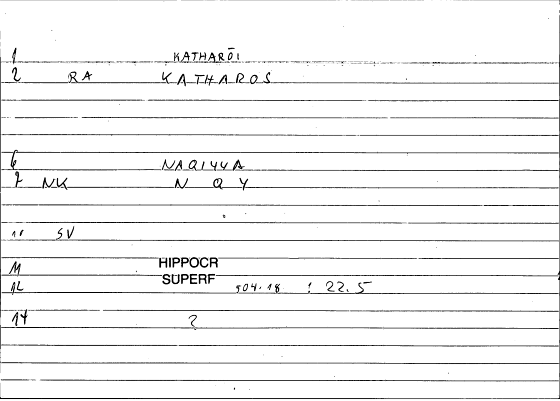 1 KATHARŌI
2 RA KATHAROS
6 NAQIYYA
7 NK N Q Y
10 SV
11 HIPPOCR
12 SUPERF 504.18 : 22.5
14 ?